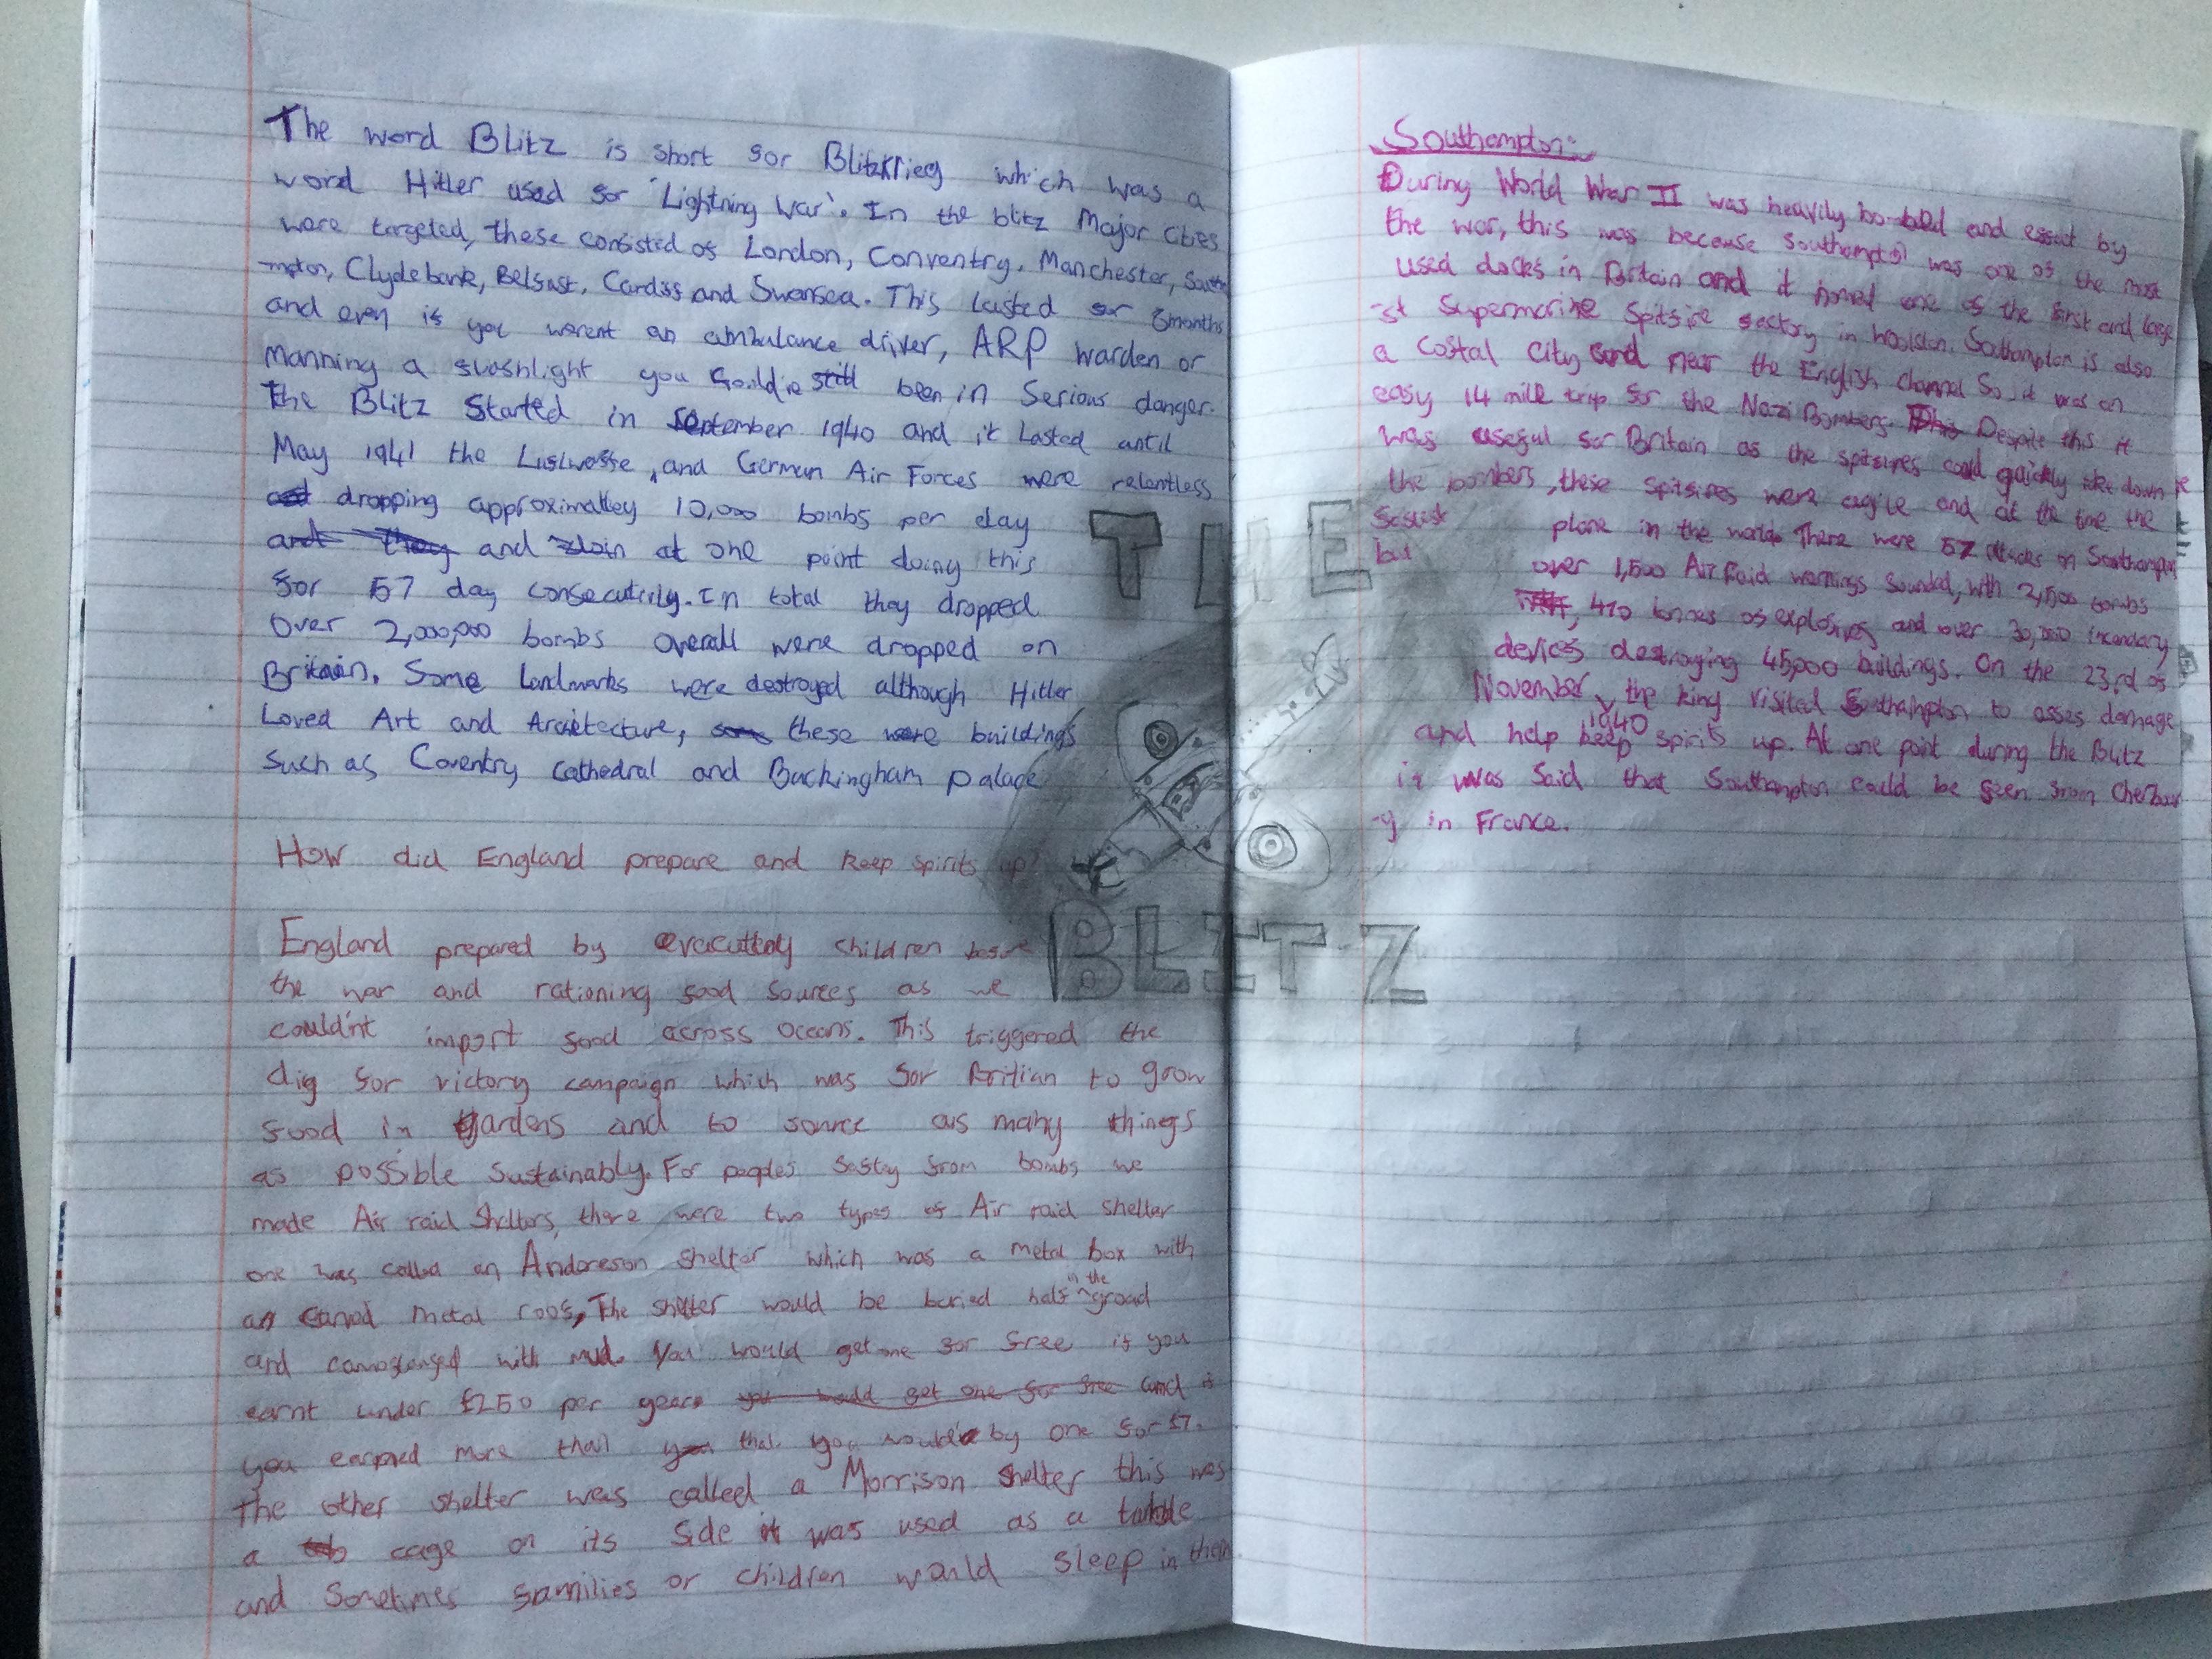 The word Blitz is short for Blitzkrieg which was a
word Hitler used for 'Lightning War'. In the blitz Major cities
were targeted, these consisted of London, Conventry, Manchester, South
-mpton, Clydebank, Belfast, Cardiff and Swansea. This lasted for 8 months
and even if you werent an ambulance driver, ARP warden or
Manning a flashlight you still been in Serious danger.
the Blitz Started in September 1940 and it lasted until
May 1941 the and German Air Forces were relentless
dropping approximatley 10,000 bombs per day
and they and at one point doing this
for 57 day In total they dropped
over 2,000,000 bombs overall were dropped on
Britain. Some landmarks were destroyed although Hitler
Loved Art and these were buildings
such as Coventry Cathedral and Buckingham palace
How did England prepare and keep spirits up?
England prepared by children before
the war and rationing food sources as we
could'nt import food across oceans. This triggered the
dig for victory campaign which was for Britian to grow
food in gardens and to source as many things
as possible sustainably. For peoples from bombs we
made Air raid Shelters, there were two types of Air raid shelter
one was called an Andoreson shelter which was a metal box with
metal roof, The shelter would be buried half in the
and with mud. You would get one for free if you
earnt under £250 per year you would get one for free and if
you earned more than you that you would by one for £7.
The other shelter was called a Morrison shelter this was
a cage on its side it was used as a table
and Sometimes families or children would sleep in them
THE
BLITZ
Southampton:
During World War II was heavily and by
the war, this was because Southampton was one of the most
used docks in Britain and it homed one of the first and large
-st Supermarine Spitfire factory in woolston. Southampton is also
a Costal City and near the English Channel So it was an
easy 14 mile trip for the Nazi Bombers. This Despite this it
was useful for Britain as the spitfires could quickly take down
the bombers, these spitfires were agile and at the time the
fastest plane in the world. There were 57 attacks on Southampton
but over 1,500 Air Raid warnings sounded, with 2,500 bombs
470 tonnes of explosives and over 30,000
devices destroying 45,000 buildings. On the 23rd of
November 1940 the king visited Southampton to asses damage
and help keep spirits up. At one point during the Blitz
it was said that Southampton could be seen from Cherbour
-g in France.